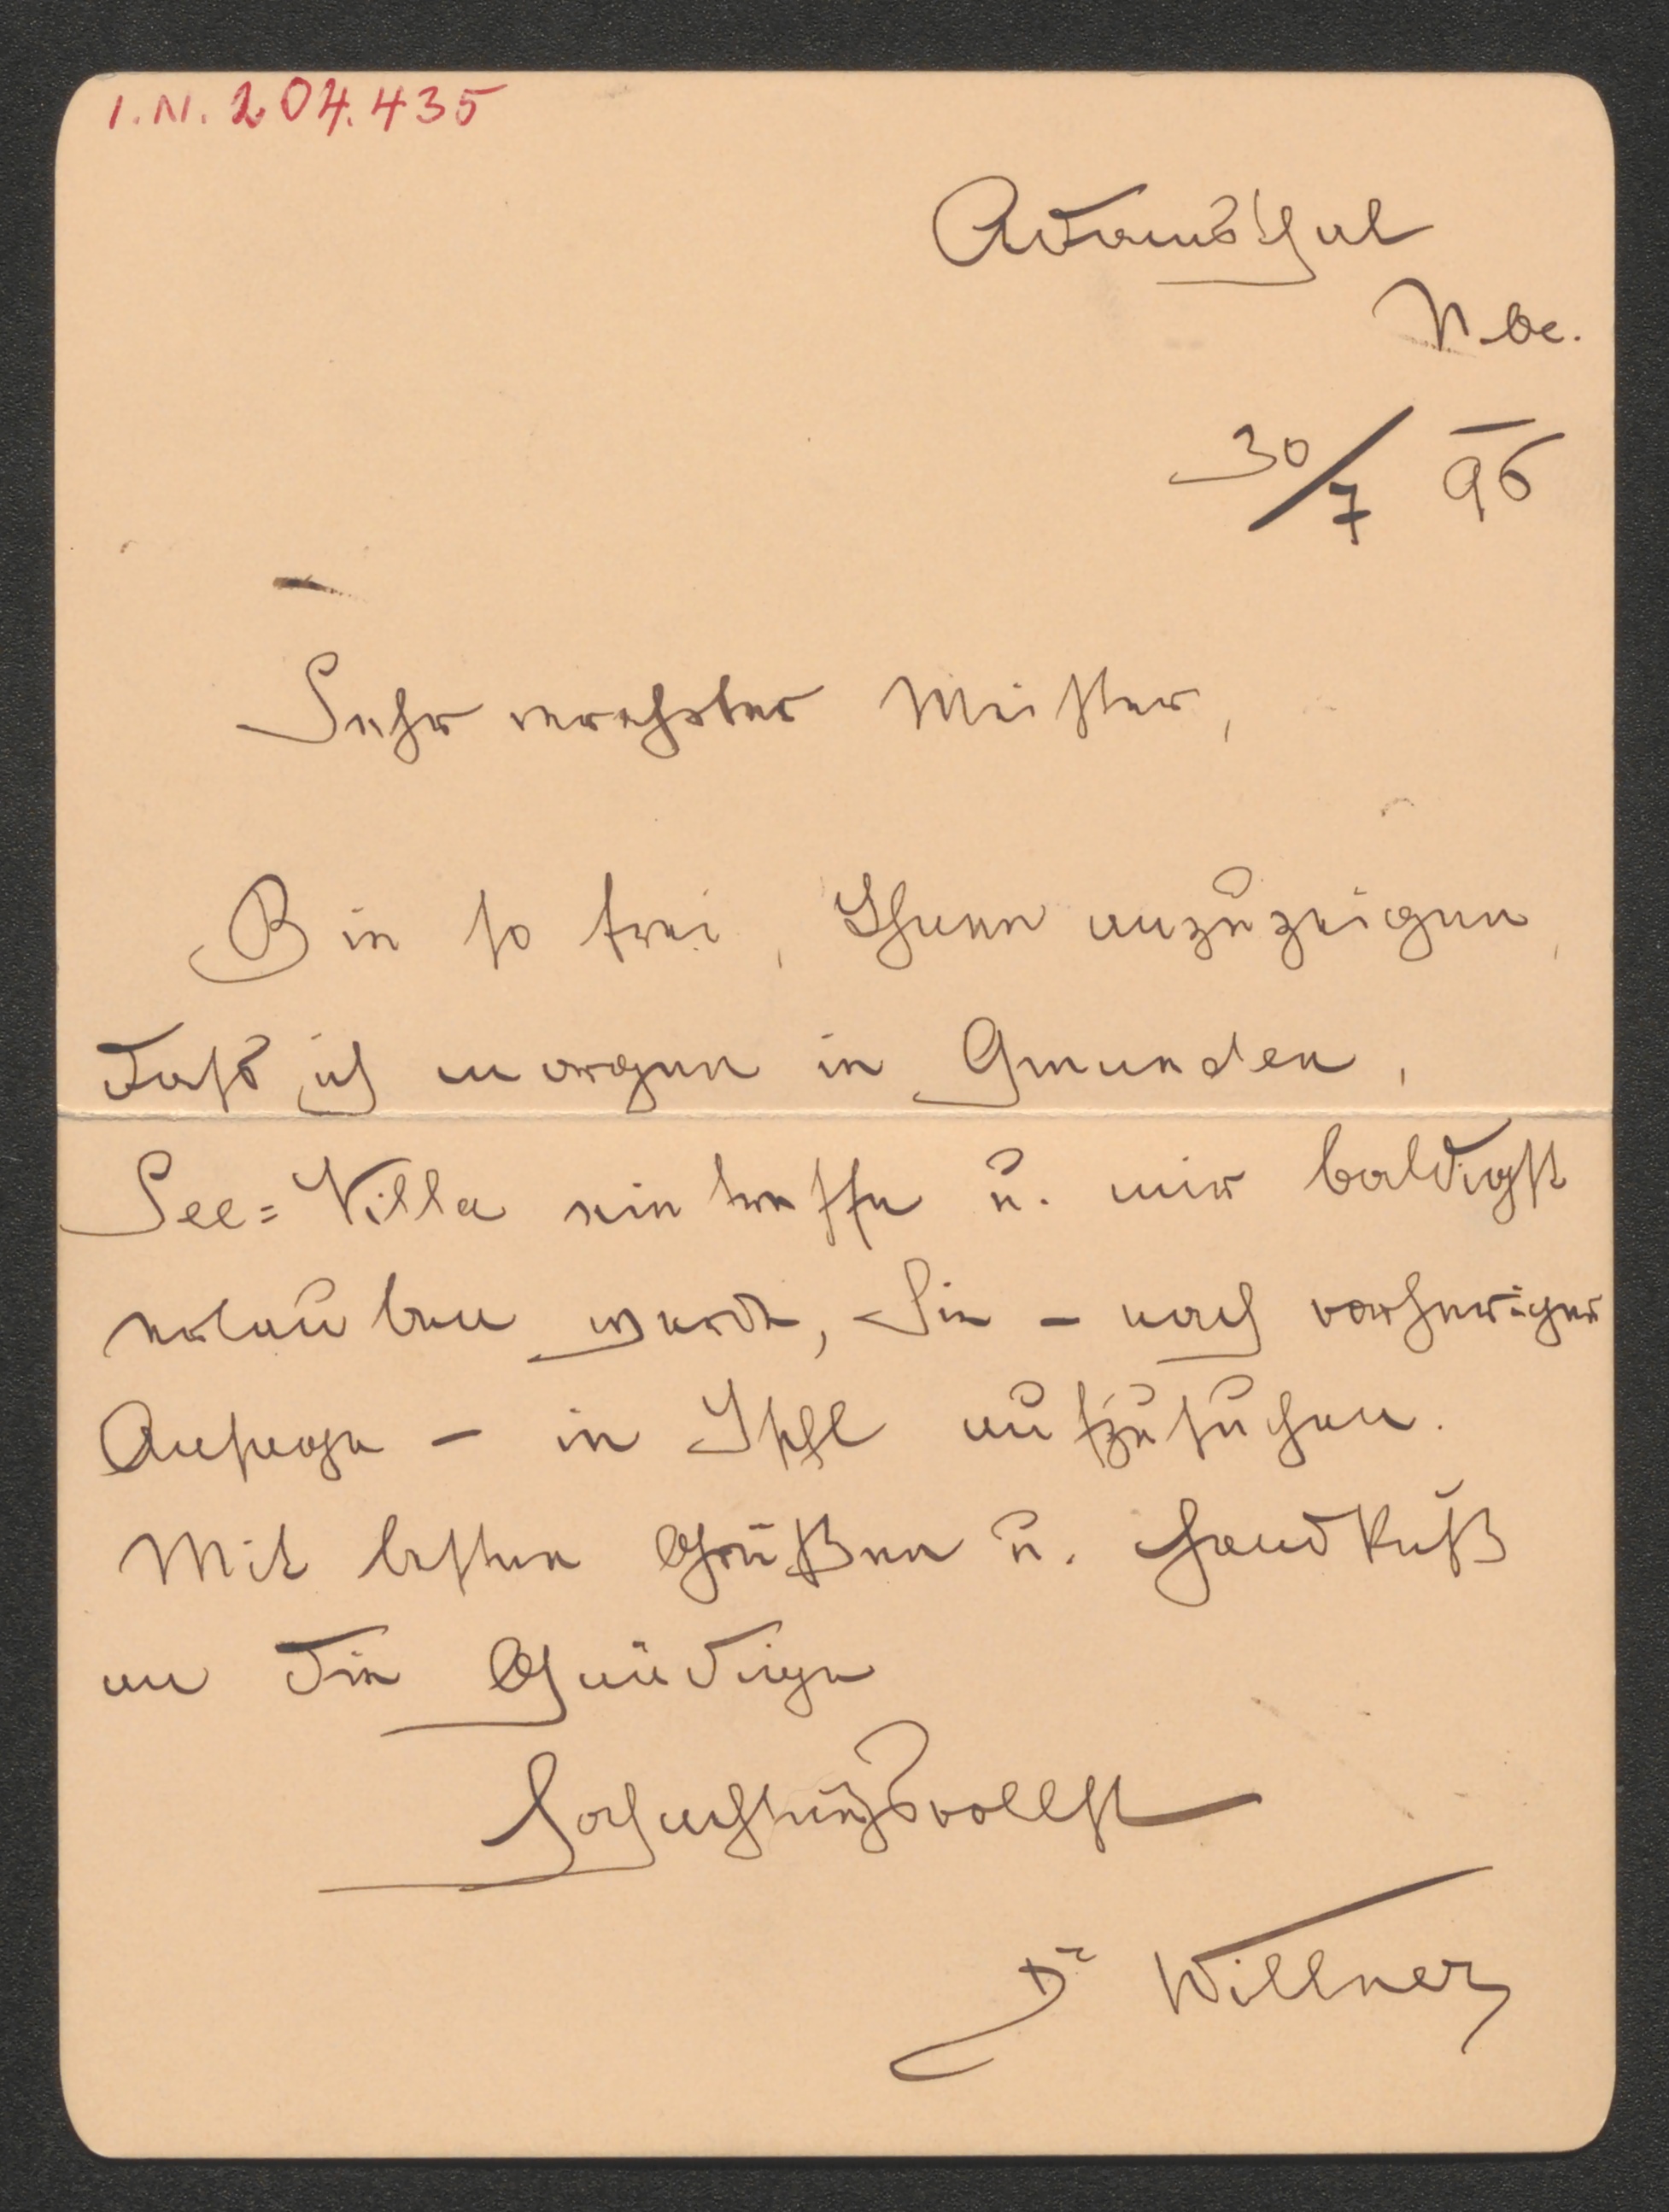 I.N. 204.435
Adamsthal
N. Oe.
30/7 96
Sehr verehrter Meister,
Bin so frei, Ihnen anzuzeigen,
daß ich morgen in Gmunden,
See=Villa eintreffe u. mir baldigst
erlauben werde, Sie – nach vorheriger
Anfrage – in Ischl aufzusuchen.
Mit besten Grüßen u. Handkuß
an die Gnädige
Hochachtungsvollst
Dr Willner